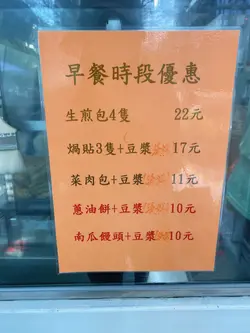 早餐時段優惠
生煎包4隻 22元
焗貼3隻+豆漿 17元
菜肉包+豆漿 11元
蔥油餅+豆漿 10元
南瓜饅頭+豆漿 10元